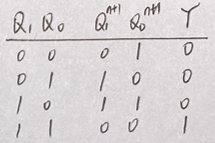 Q₁ Q₀ Q₁ⁿ⁺¹ Q₀ⁿ⁺¹ Y
0 0 0 1 0
0 1 1 0 0
1 0 1 1 0
1 1 0 0 1